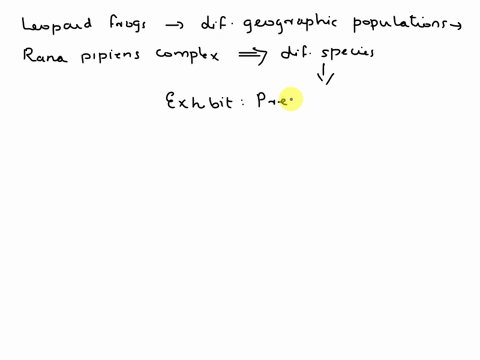 Leopard frogs → dif. geographic populations →
Rana pipiens complex ⇒ dif. species
↓
Exhbit : Pre